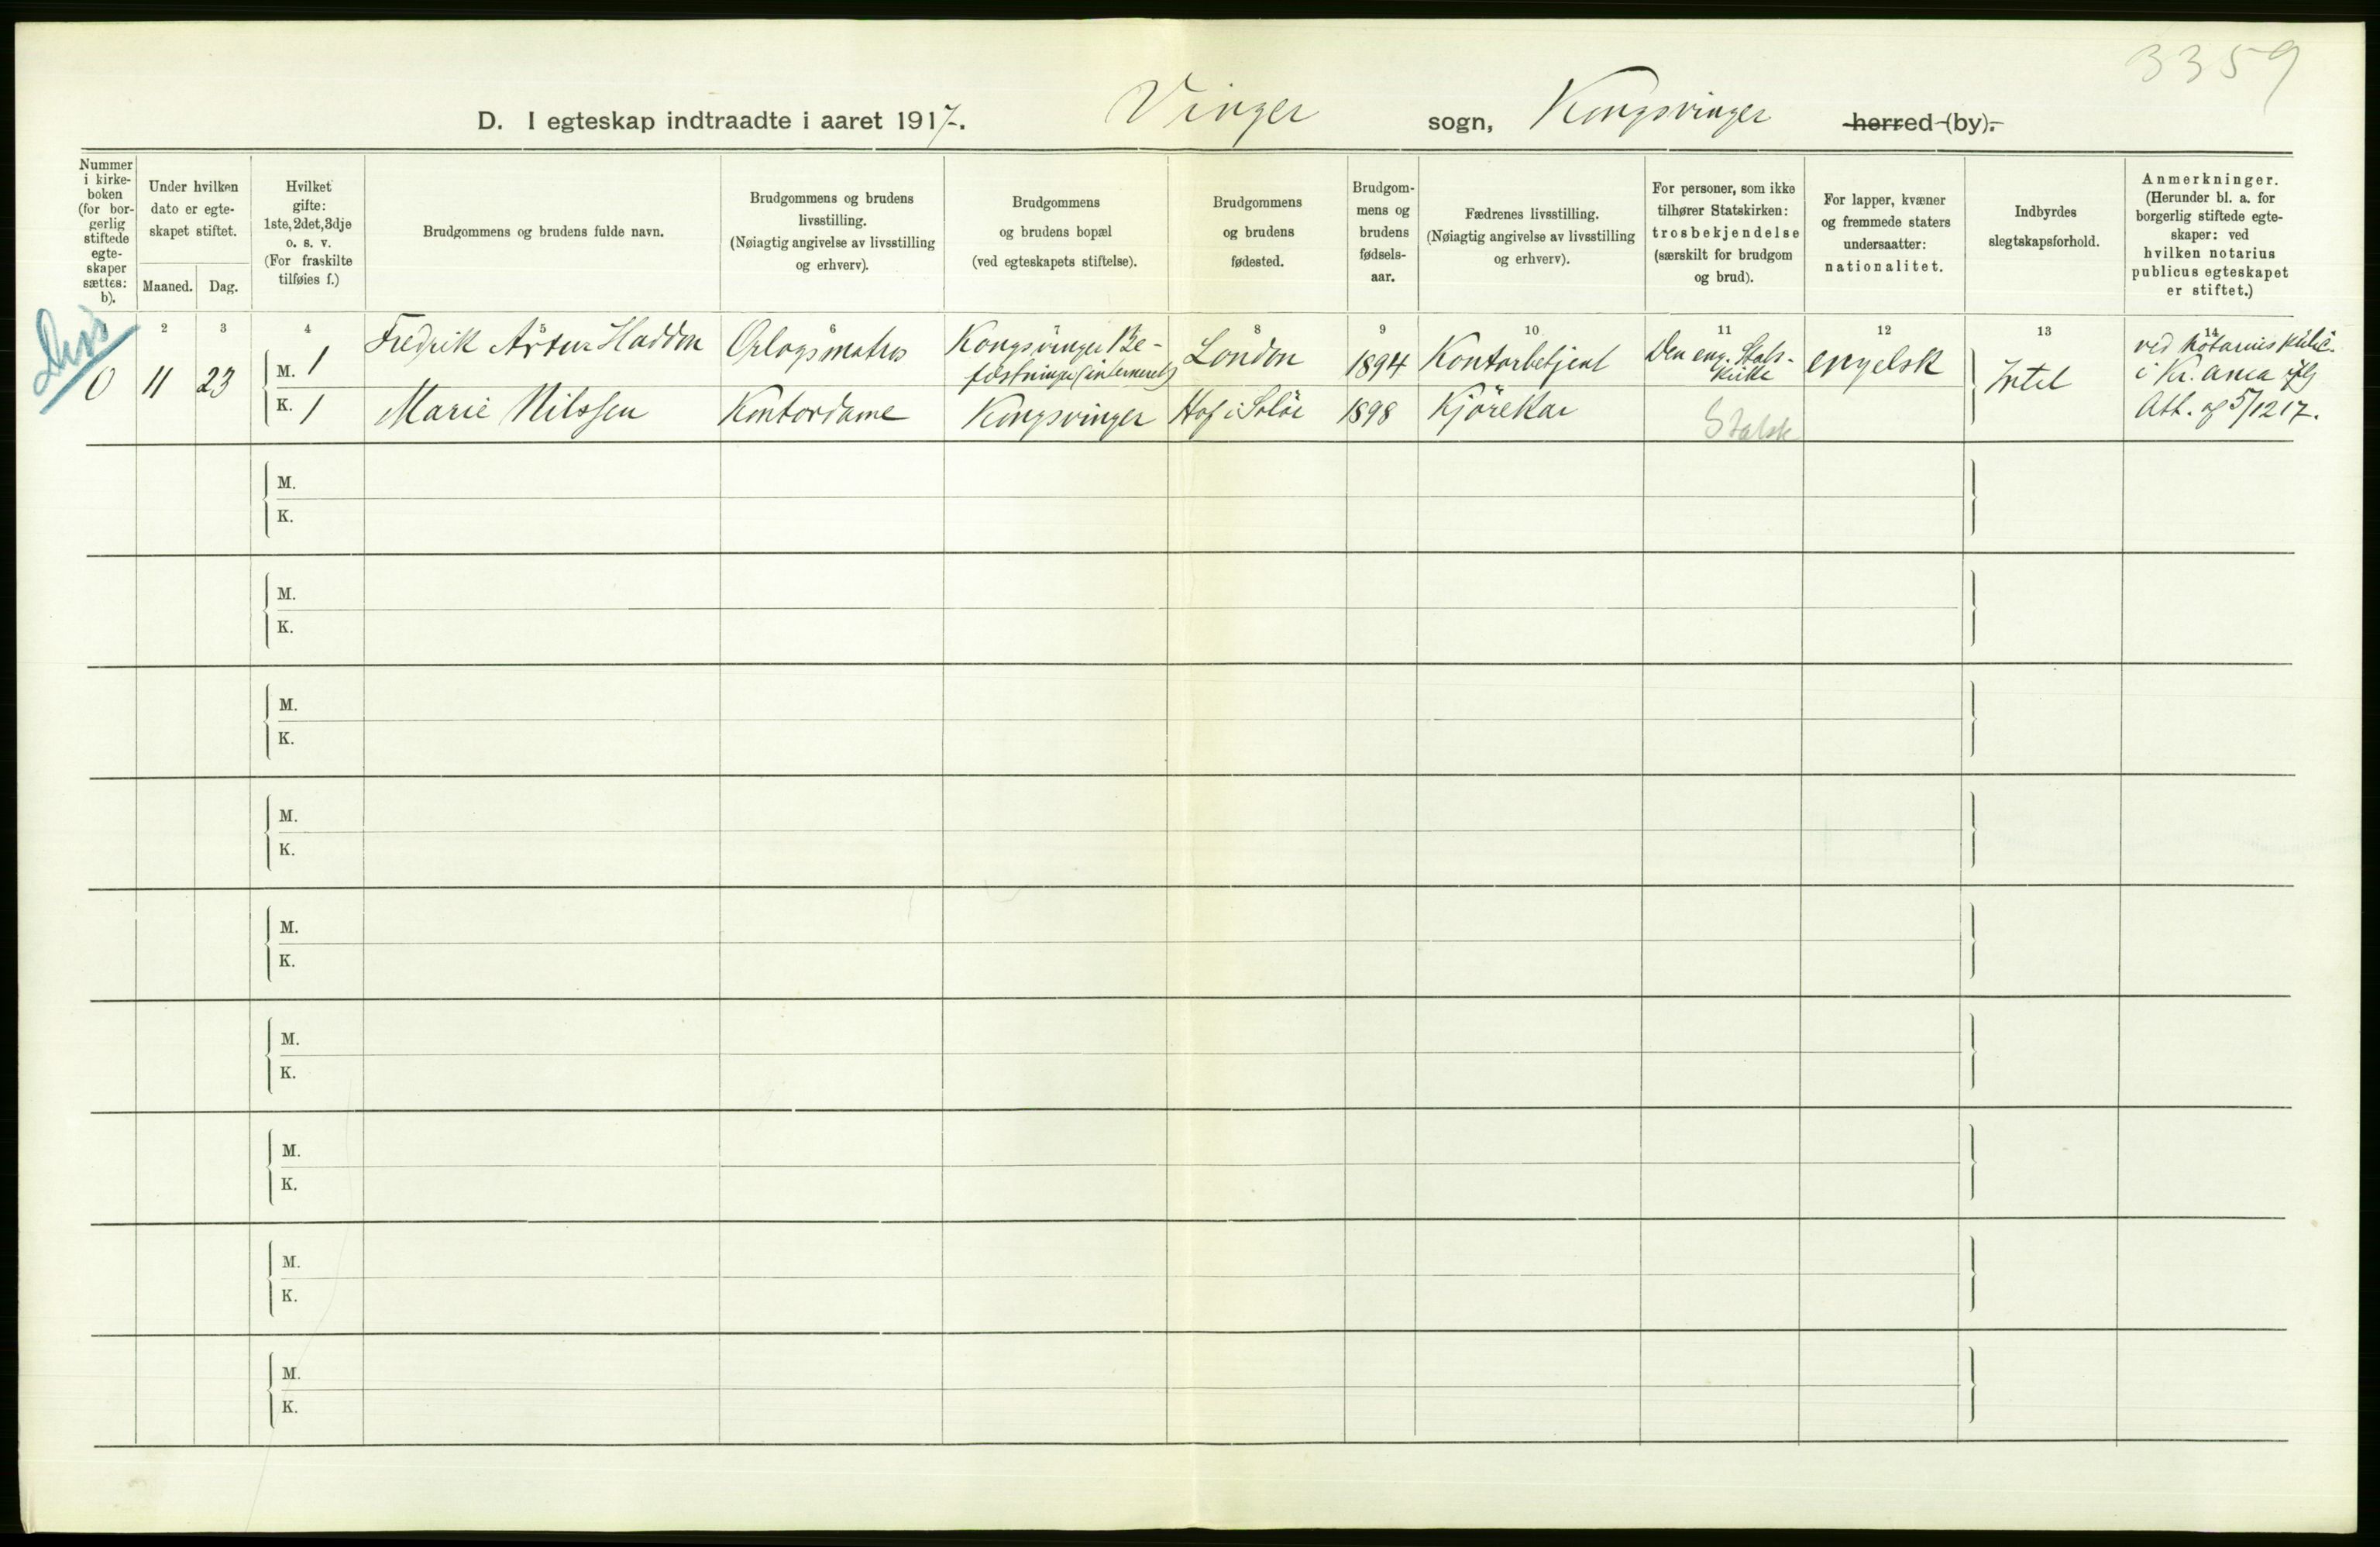 3359
D. I egteskap indtraadte i aaret 1917. Vinger sogn, Kongsvinger herred (by).
Nummer i kirke-boken (for bor-gerlig stiftede egte-skaper sættes: b).
Under hvilken dato er egte-skapet stiftet.
Maaned. Dag.
Hvilket gifte: 1ste, 2det, 3dje o. s. v. (For fraskilte tilføies f.)
Brudgommens og brudens fulde navn.
Brudgommens og brudens livsstilling. (Nøiagtig angivelse av livsstilling og erhverv).
Brudgommens og brudens bopæl (ved egteskapets stiftelse).
Brudgommens og brudens fødested.
Brudgom-mens og brudens fødsels-aar.
Fædrenes livsstilling. (Nøiagtig angivelse av livsstilling og erhverv).
For personer, som ikke tilhører Statskirken: trosbekjendelse (særskilt for brudgom og brud).
For lapper, kvæner og fremmede staters undersaatter: nationalitet.
Indbyrdes slegtskapsforhold.
Anmerkninger. (Herunder bl. a. for borgerlig stiftede egte-skaper: ved hvilken notarius publicus egteskapet er stiftet.)
1 2 3 4 5 6 7 8 9 10 11 12 13 14
Diss
0 11 23
M. 1 Fredrik Artur Haddon Orlogsmatros Kongsvinger Be-
fæstninger (interneret) London 1894 Kontorbetjent Den eng. Stats-
kirke engelsk
K. 1 Marie Nilssen Kontordame Kongsvinger Hof i Solør 1898 Kjørekar Statsk
Intet
ved notarius public.
i Kr.ania iflg
Att. af 5/12 17.
M.
K.
M.
K.
M.
K.
M.
K.
M.
K.
M.
K.
M.
K.
M.
K.
M.
K.